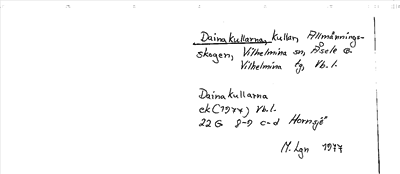 Dainakullarna, kullar, Allmännings-
skogen, Vilhelmina sn, Åsele
Vilhelmina lg, Vb. l.
Dainakullarna
ek (1974) Vb. l.
22 G 8-9 c-d Hornsjö
M. Lgn 1977